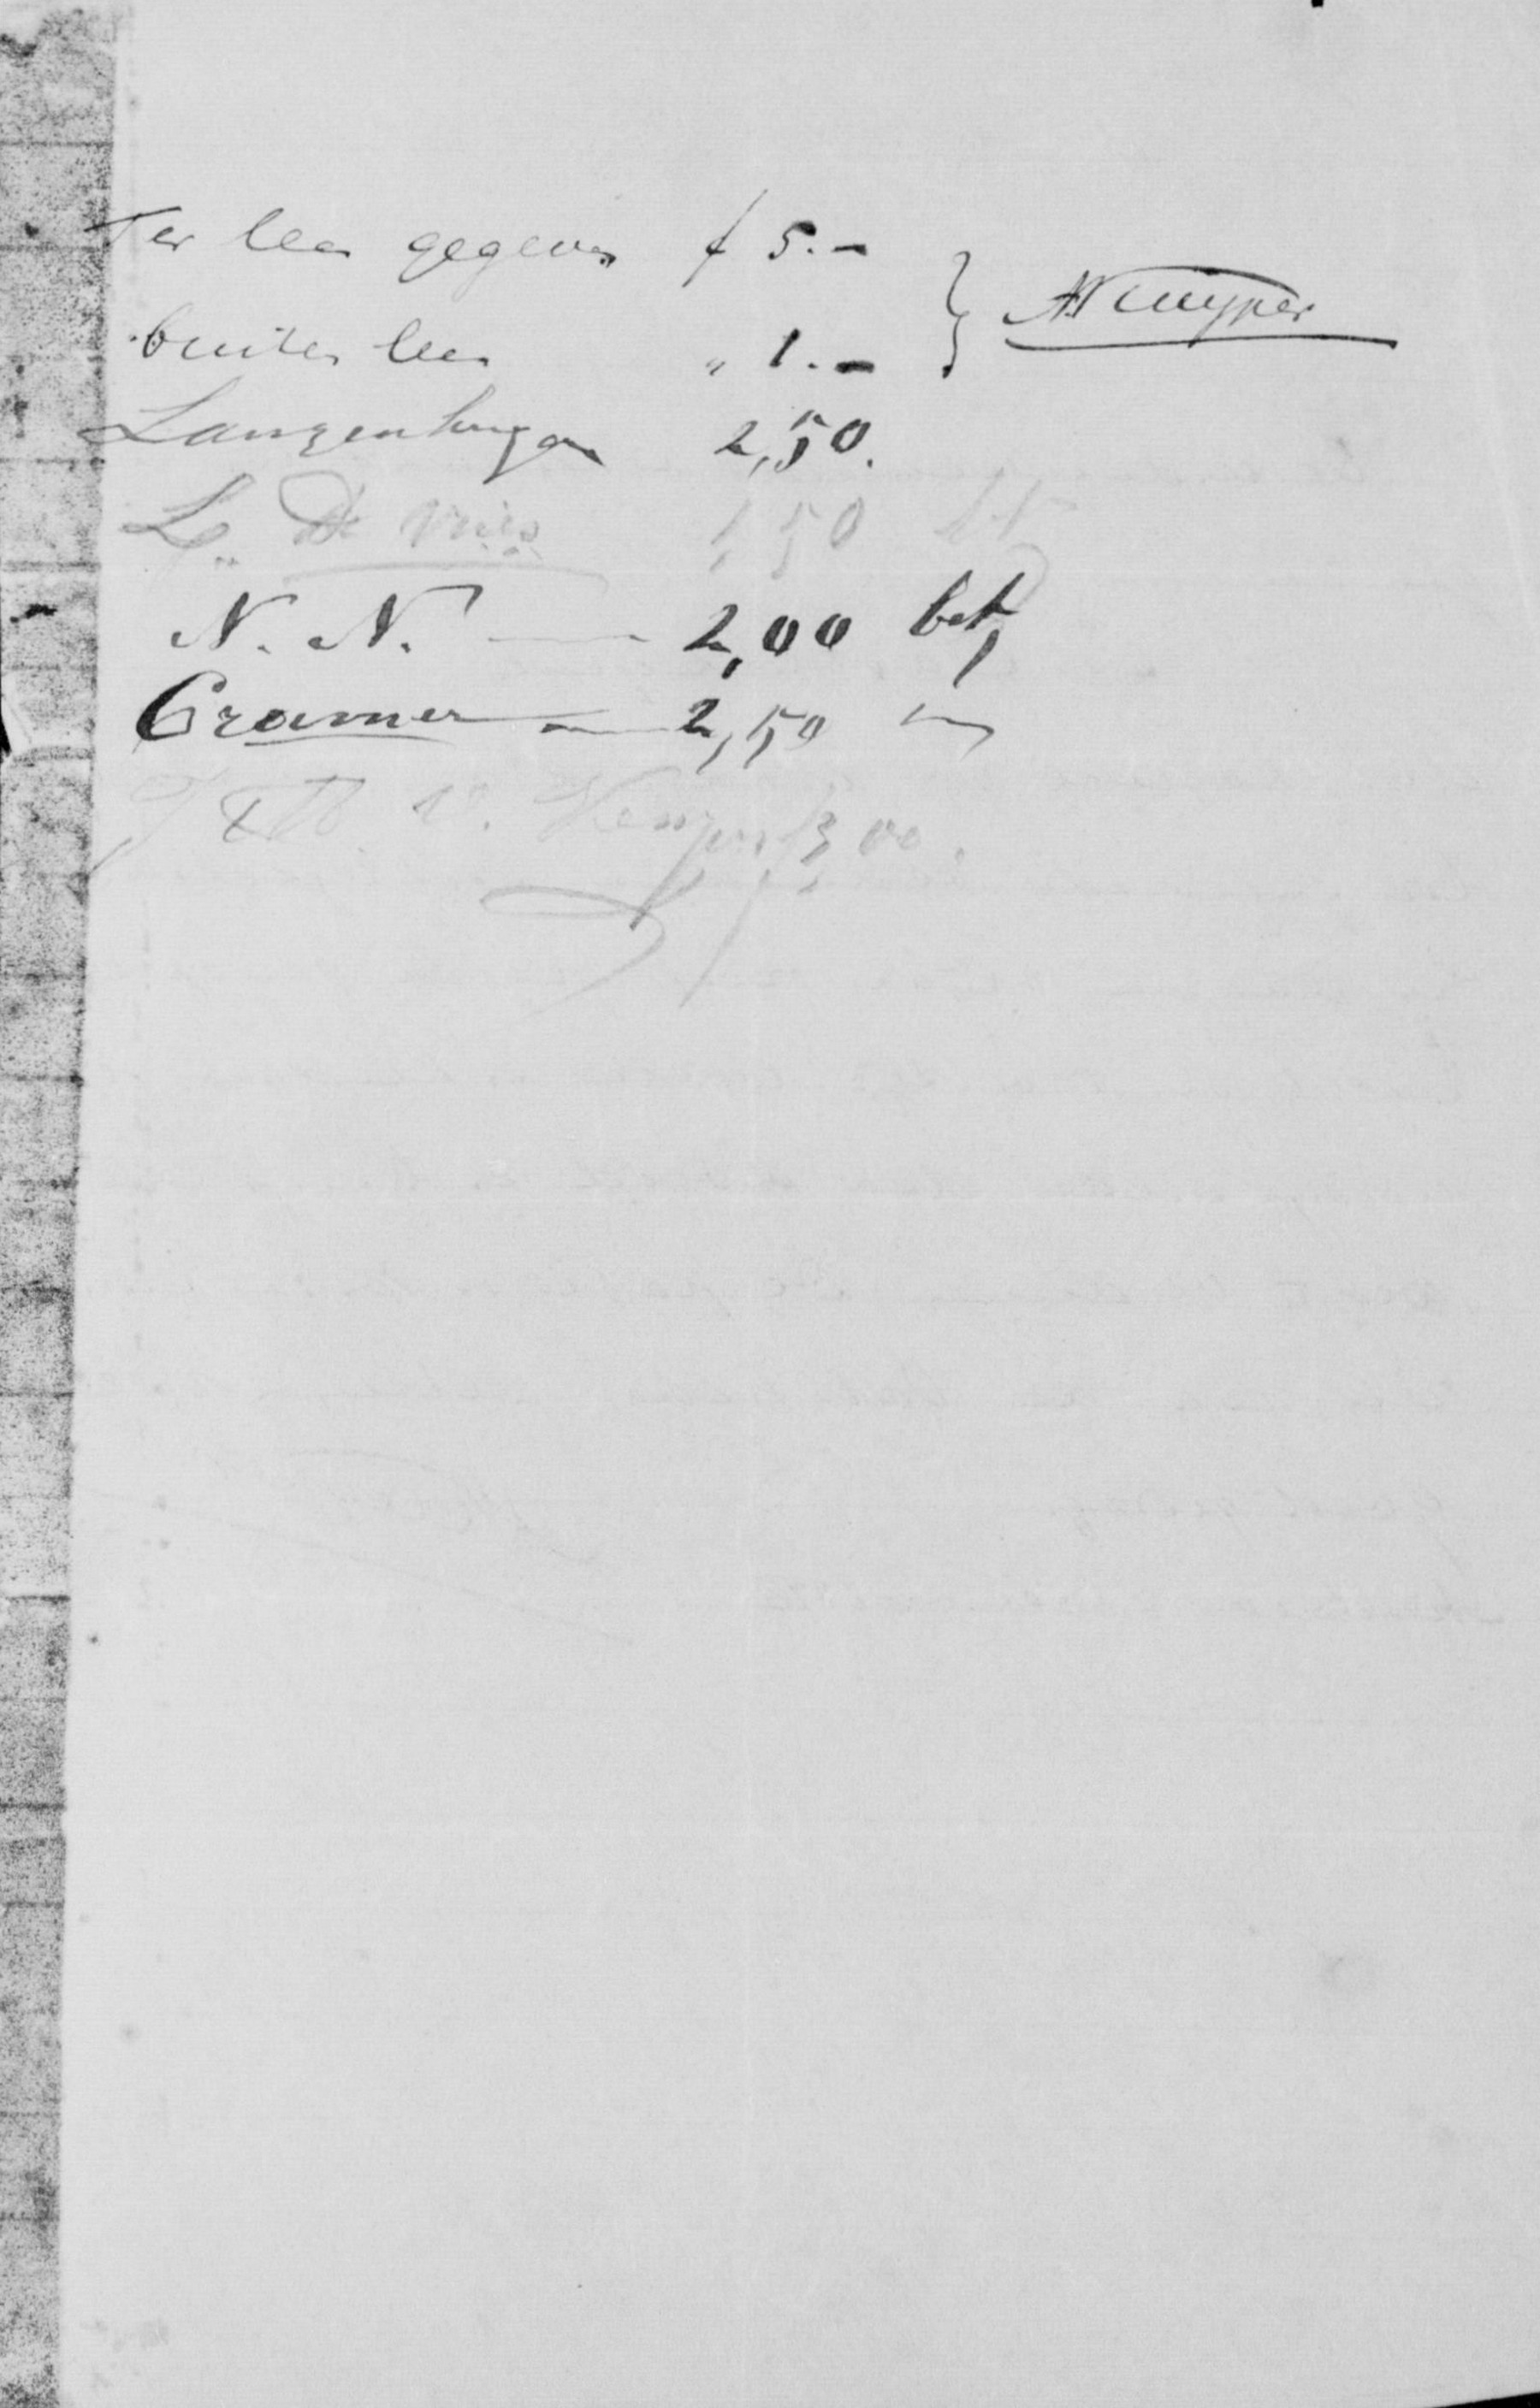 Ter leen gegeven f 5.-
buiten leen " 1.- } AKuyper
Langenhuyzen 2,50.
L. De Vries 1,50 bt
N. N. — 2,00 bet,
Cramer — 2,50 "
J. F. M. v. Kempen f 3,00.